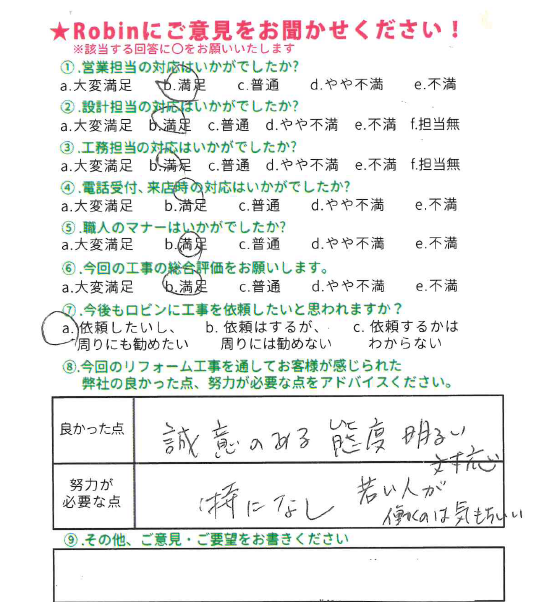 ★Robinにご意見をお聞かせください！
※該当する回答に〇をお願いいたします
①.営業担当の対応はいかがでしたか?
a.大変満足 b.満足 c.普通 d.やや不満 e.不満
②.設計担当の対応はいかがでしたか?
a.大変満足 b.満足 c.普通 d.やや不満 e.不満 f.担当無
③.工務担当の対応はいかがでしたか?
a.大変満足 b.満足 c.普通 d.やや不満 e.不満 f.担当無
④.電話受付、来店時の対応はいかがでしたか?
a.大変満足 b.満足 c.普通 d.やや不満 e.不満
⑤.職人のマナーはいかがでしたか?
a.大変満足 b.満足 c.普通 d.やや不満 e.不満
⑥.今回の工事の総合評価をお願いします。
a.大変満足 b.満足 c.普通 d.やや不満 e.不満
⑦.今後もロビンに工事を依頼したいと思われますか？
a.依頼したいし、 b.依頼はするが、 c.依頼するかは
周りにも勧めたい 周りには勧めない わからない
⑧.今回のリフォーム工事を通してお客様が感じられた
弊社の良かった点、努力が必要な点をアドバイスください。
良かった点
誠意のある態度 明るい
対応
努力が
必要な点
特になし 若い人が
働くのは気もちいい
⑨.その他、ご意見・ご要望をお書きください